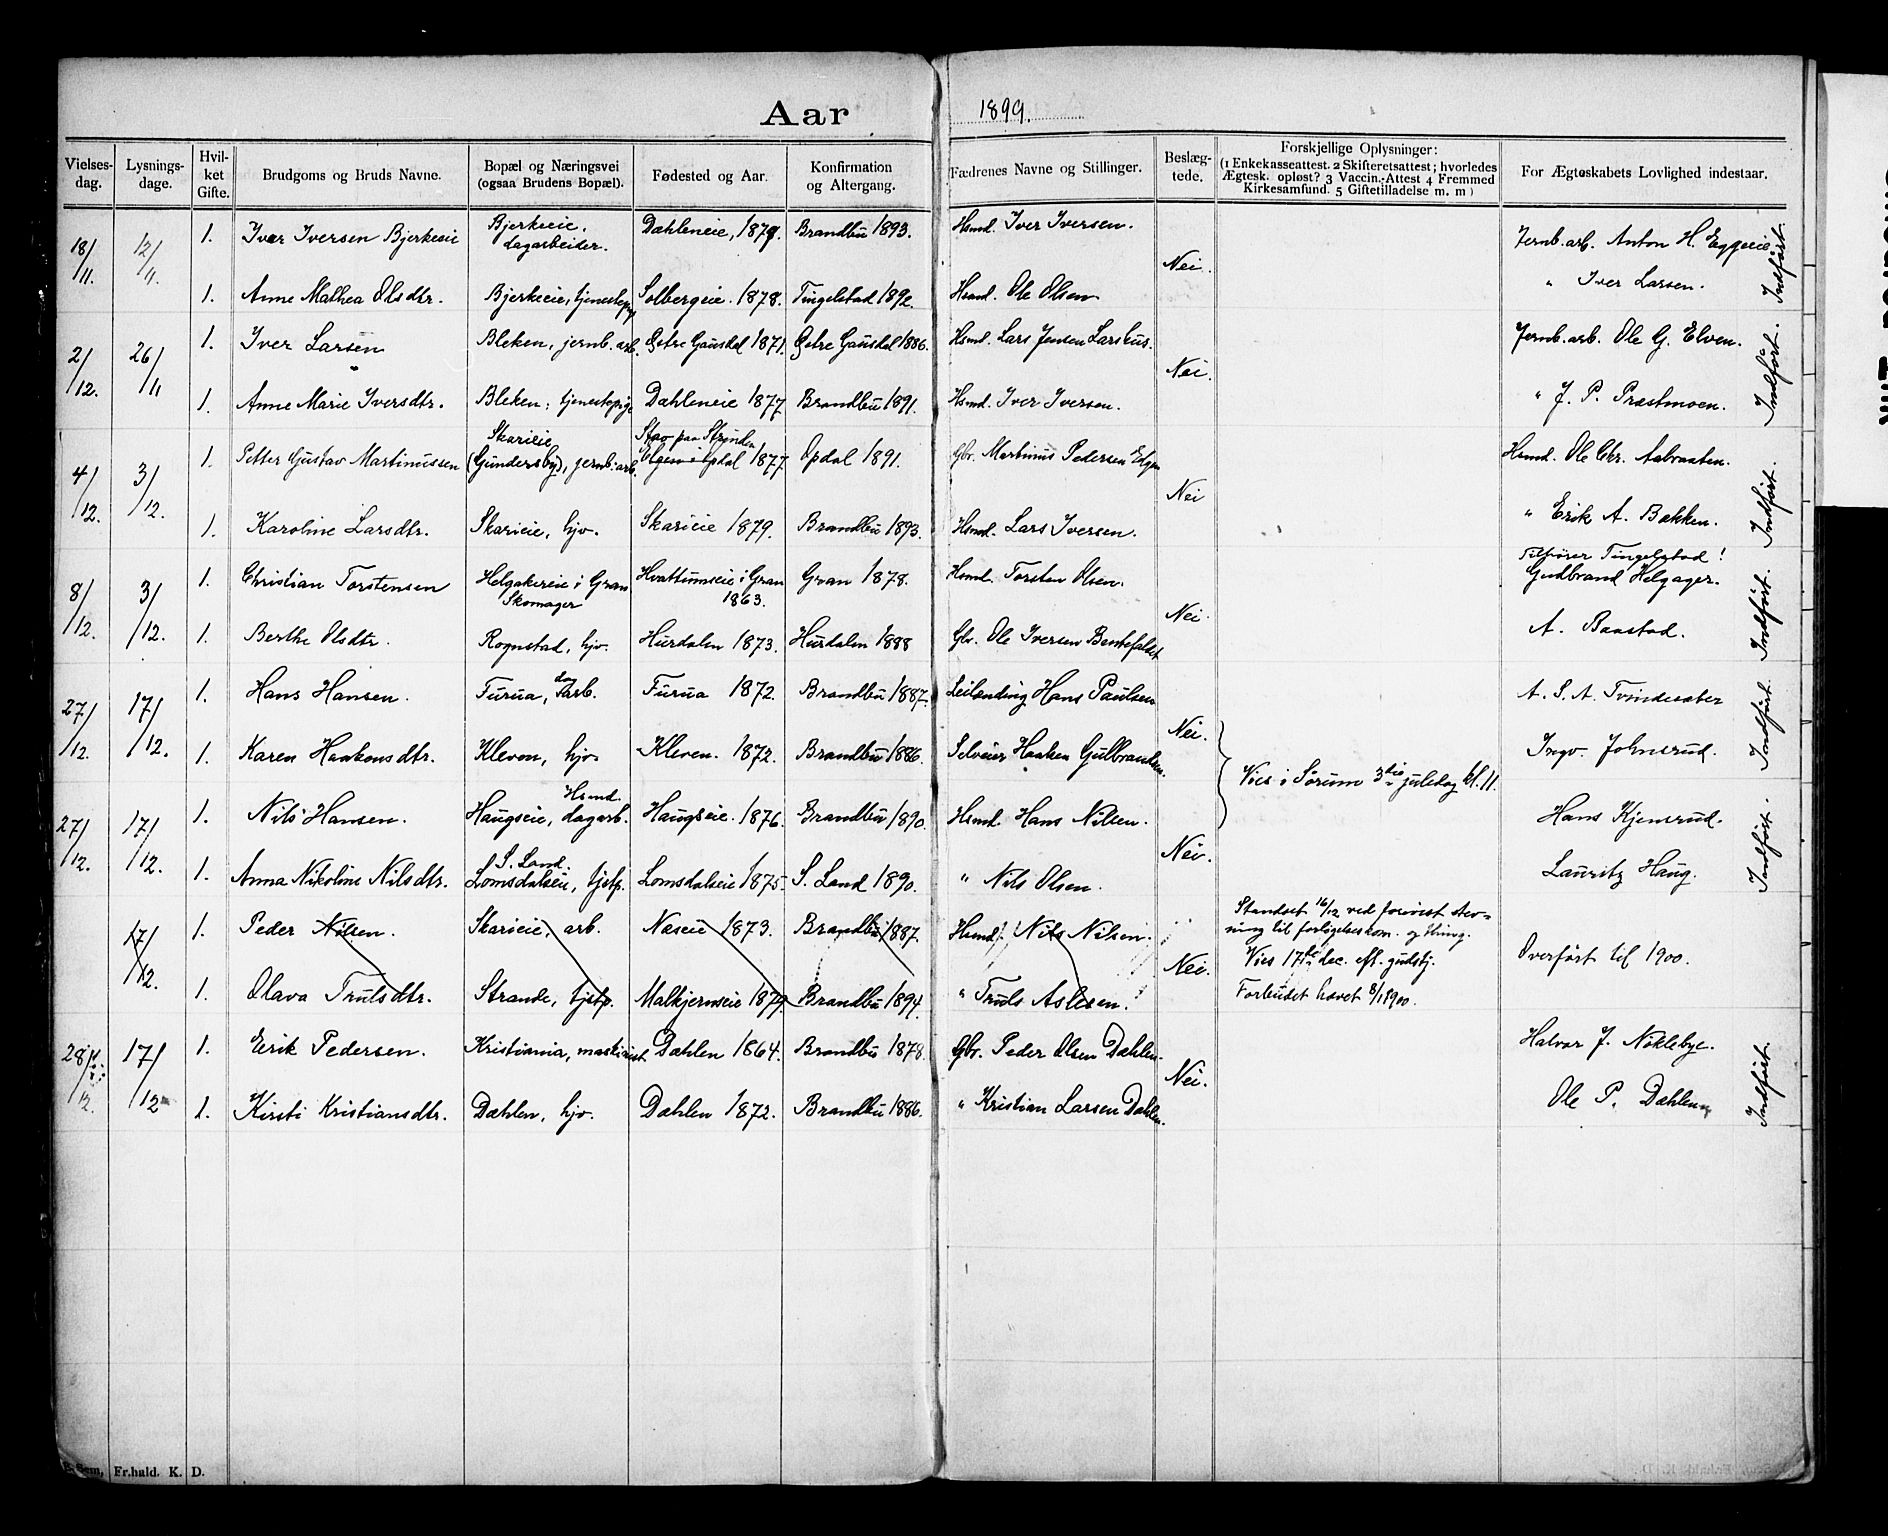 Aar 1899.
Vielses-dag. Lysnings-dage. Hvil-ket Gifte. Brudgoms og Bruds Navne. Bopæl og Næringsvei (ogsaa Brudens Bopæl). Fødested og Aar. Konfirmation og Altergang. Fædrenes Navne og Stillinger. Beslæg-tede. Forskjellige Oplysninger: (1 Enkekasseattest. 2 Skifteretsattest; hvorledes Ægtesk. opløst? 3 Vaccin.-Attest 4 Fremmed Kirkesamfund. 5 Giftetilladelse m. m) For Ægteskabets Lovlighed indestaar.
18/11. 12/11. 1. Iver Iversen Bjerkeeie Bjerkeeie, dagarbeider. Dæhleneie, 1879. Brandbu 1893. Hsmd. Iver Iversen. Nei. Jernb. arb. Anton H. Eggeeie Indført.
1. Anne Mathea Olsdtr. Bjerkeeie, tjenestepg. Solbergeie. 1878. Tingelstad 1892. Hsmd. Ole Olsen " Iver Larsen.
2/12. 26/11 1. Iver Larsen Bleken, jernb. arb. Østre Gausdal 1871. Østre Gausdal 1886. Hsmd. Lars Jensen Larshus. Nei. Jernb. arb. Ole G. Elven. Indført.
1. Anne Marie Iversdtr. Bleken, tjenestepige Dæhleneie 1877 Brandbu 1891. Hsmd. Iver Iversen. " J. P. Præstmoen.
4/12. 3/12. 1. Petter Gustav Martinussen Skarieie (Gundersby), jernb. arb. Stav paa Strinden 1877. Opdal 1891. Gbr. Martinus Pedersen Nei Hsmd. Ole Chr. Aabraaten. Indført.
1. Karoline Larsdtr. Skarieie, hjv. Skarieie 1879. Brandbu 1893. Hsmd. Lars Iversen. " Erik A. Bakken.
8/12. 3/12. 1. Christian Torstensen Helgakereie i Gran Skomager Hvattumseie i Gran 1863. Gran 1878. Hsmd. Torsten Olsen. Nei. Tilhører Tingelstad! Gudbrand Helgager. Indført.
1. Berthe Olsdtr. Rognstad, hjv. Hurdalen 1873. Hurdalen 1888 Gbr. Ole Iversen Bentefaldet A. Baastad.
27/12. 17/12. 1. Hans Hansen. Furua, dagarb. Furua 1872. Brandbu 1887. Leilending Hans Paulsen Nei. A. S. A. Tvindesæter Indført.
1. Karen Haakonsdtr. Kleven, hjv. Kleven. 1872. Brandbu 1886. Selveier Haaken Gulbrandsen. Vies i Sørum 3die juledag kl. 11. Ingv. Johnsrud.
27/12. 17/12. 1. Nils Hansen. Haugseie, Hsmd. dagarb. Haugseie. 1876. Brandbu 1890. Hsmd. Hans Nilsen. Nei. Hans Kjensrud. Indført.
1. Anna Nikoline Nilsdtr. S. Land. Lomsdalseie, tjstp. Lomsdalseie 1875. S. Land 1890. " Nils Olsen. Lauritz Haug.
17/12. 1. Peder Nilsen. Skarieie, arb. Næseie 1873. Brandbu 1887. Hsmd. Nils Nilsen. Nei. Standset 16/12 ved forevist stev-ning til forligelseskom. og thing. Overført til 1900.
Vies 17de dec. eft. gudstj.
1. Olava Trulsdtr. Strande, tjstp. Malkjernseie 1879. Brandbu 1894. " Truls Aslesen. Forbudet hævet 8/1 1900.
28/12. 17/12 1. Erik Pedersen. Kristiania, maskinist Dæhlen 1864. Brandbu 1878. Gbr. Peder Olsen Dæhlen. Nei. Halvor J. Nøklebye. Indført.
1. Kirsti Kristiansdtr. Dæhlen, hjv. Dæhlen 1872. Brandbu 1886. " Kristian Larsen Dæhlen. Ole P. Dæhlen
Sem, Fr.hald. K. D.